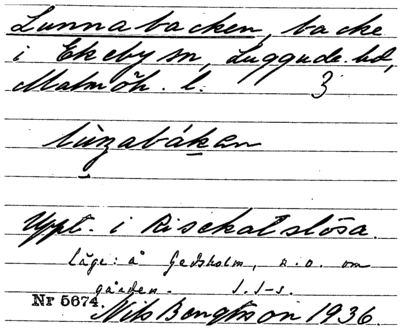 Lunnabacken, backe
i Ekeby sn, Luggude hd,
Malmöh. l. 3
Uppt. i Risekatslösa.
Läge: å Gedsholm, n.o. om
gården.
Nr 5674. Nils Bengtsson 1936.